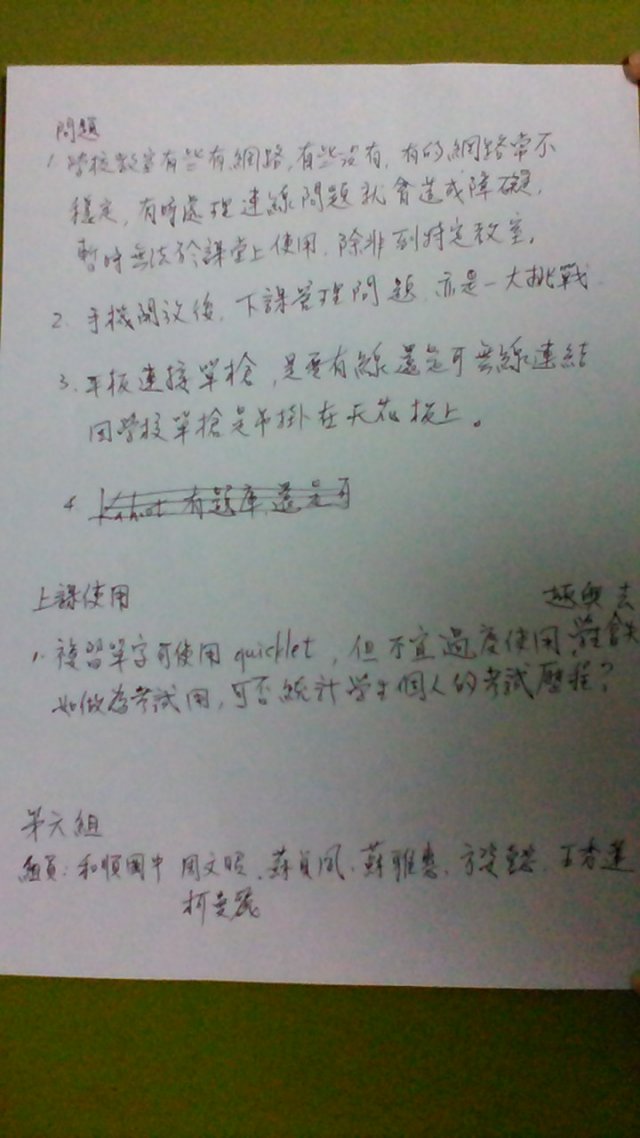 問題
1. 學校教室有些有網路,有些沒有,有的網路常不
穩定,有時處理連線問題就會造成障礙,
暫時無法於課堂上使用,除非到特定教室。
2. 手機開放後,下課管理問題,亦是一大挑戰.
3. 平板連接單槍,是要有線還是可無線連結
因學校單槍是吊掛在天花板上。
4 Kahoot 有題庫還是可
上課使用
1. 複習單字可使用 quizlet,但不宜過度使用,會失去興趣
如做為考試用,可否統計學生個人的考試歷程?
第六組
組員: 和順國中 周文昭、蘇貞鳳、蘇雅惠、王秀蓮